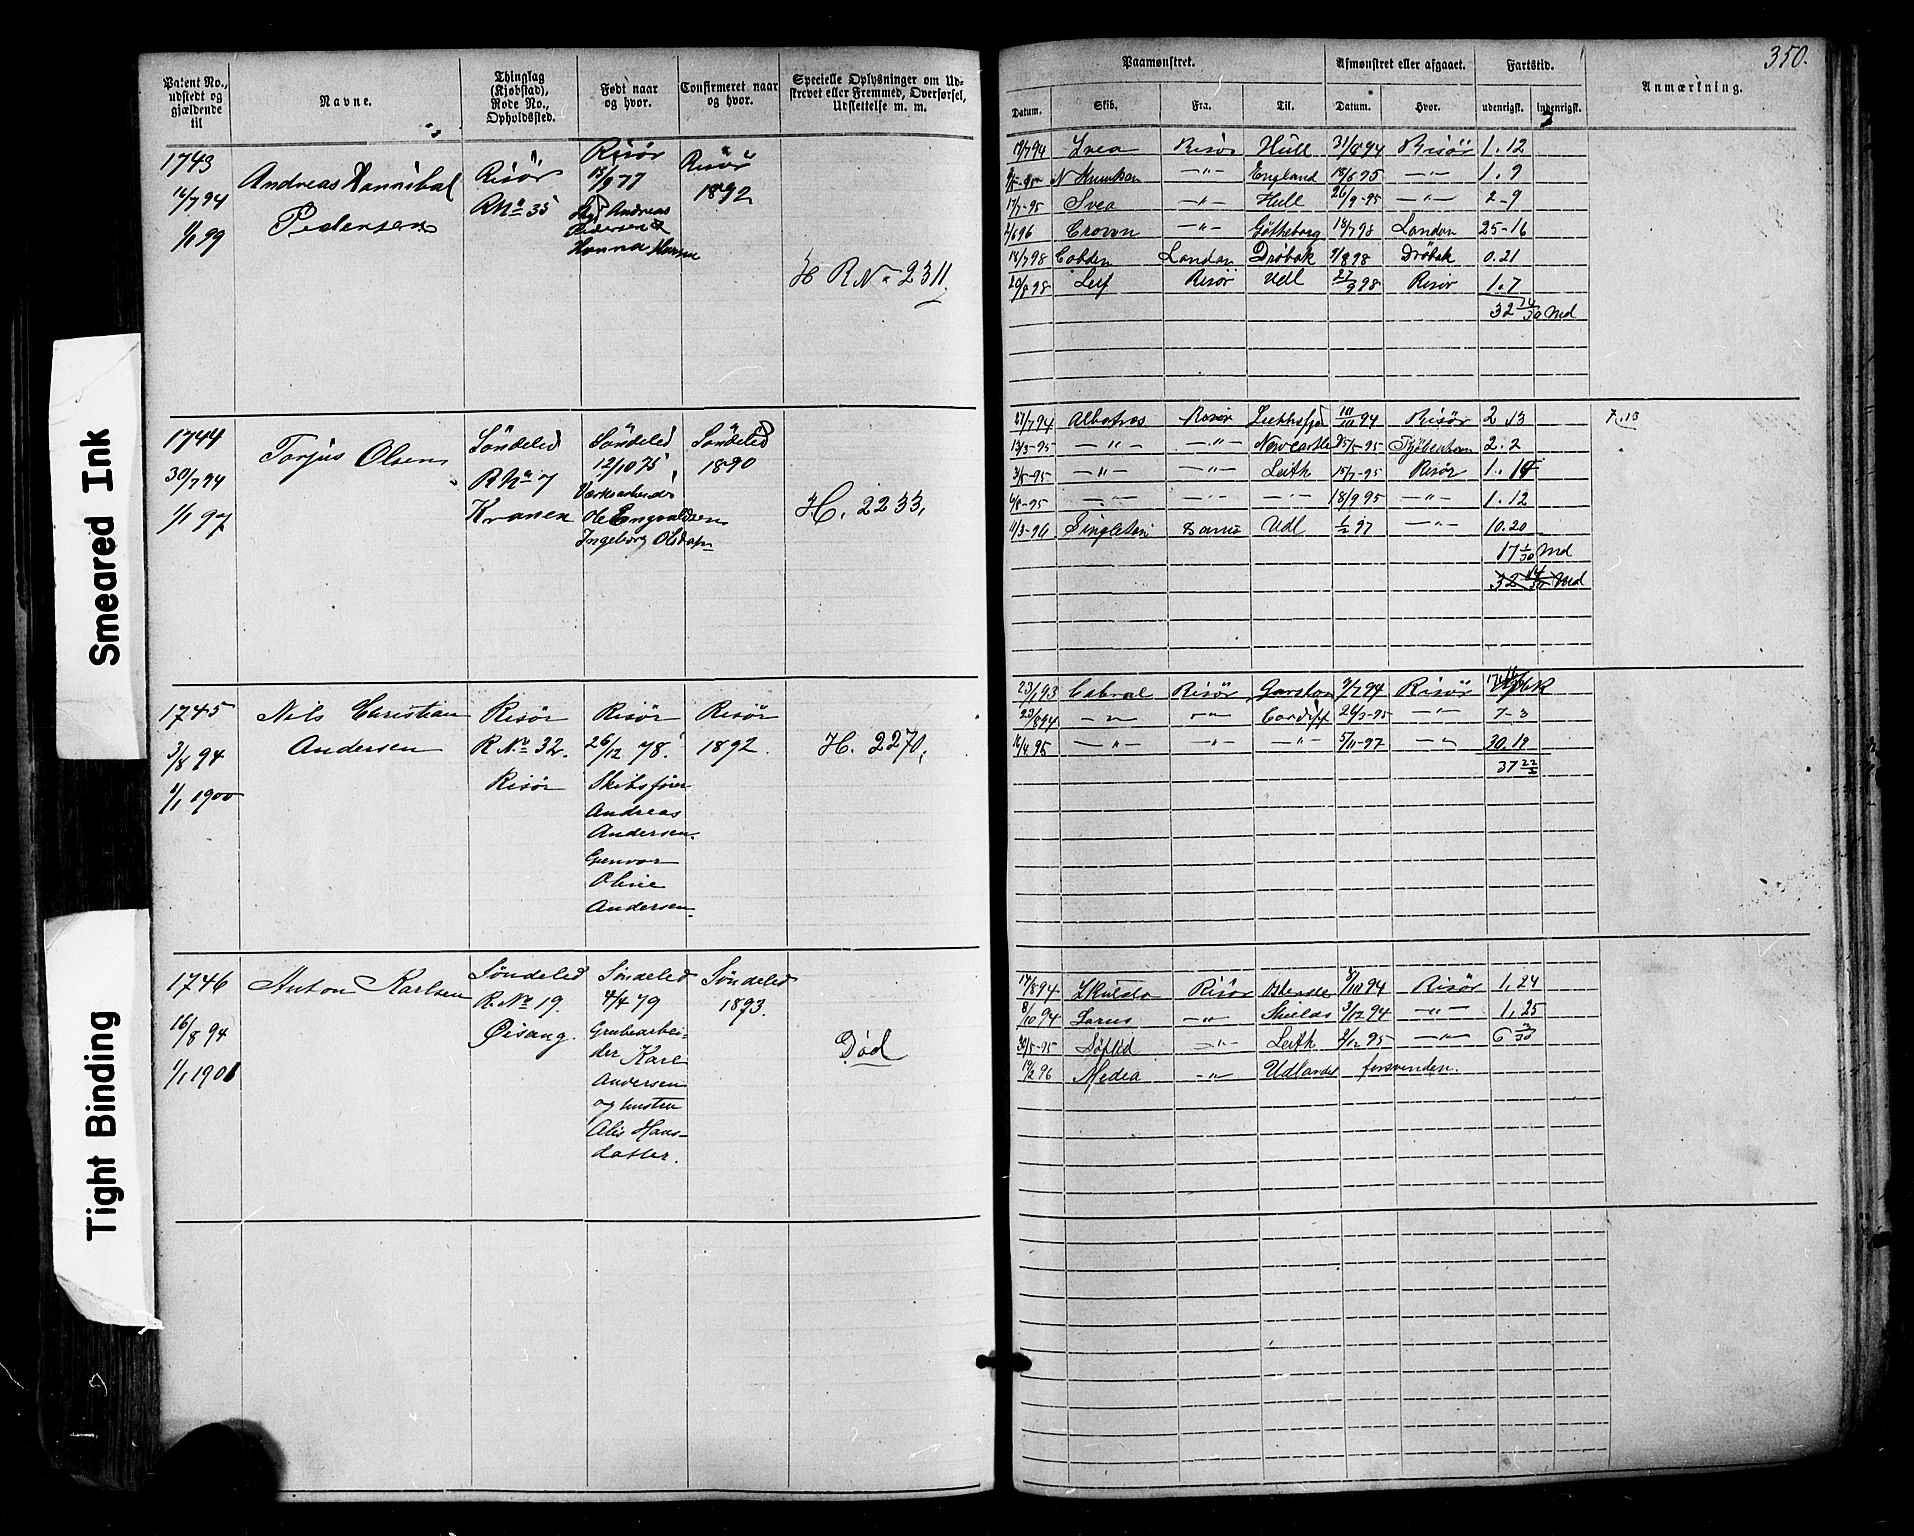 Smeared Ink
Tight Binding
350.
Patent No., udstedt og gjældende til
Navne.
Thinglag (Kjøbstad), Rode No., Opholdssted.
Født naar og hvor.
Confirmeret naar og hvor.
Specielle Oplysninger om Udskrevet eller Fremmed, Overførsel, Udslettelse m. m.
Paamønstret.
Afmønstret eller afgaaet.
Fartstid.
Anmærkning.
Datum. Skib. Fra. Til. Datum. Hvor. udenrigsk. indenrigsk.
1743
16/7 94
1/1 99
Andreas Hannibal
Pedersen
Risør
R No 35
Risør
18/9 77
Andreas
Pedersen
Hanna
Risør
1892
H R No 2311
19/7 94 Svea Risør Hull 31/8 94 Risør 1.12
N Knudsen —"— England 18/6 95 —"— 1.9
17/7-95 Svea —"— Hull 26/9-95 —"— 2-9
Croven —"— Götheborg 14/7 98 London 25-16
18/7 98 Cobden London Drøbak 9/8 98 Drøbak 0.21
20/8 98 Leif Risør Udl 27/9 98 Risør 1.7
32 14/30 Md
1744
30/7 94
1/1 97
Torjus Olsen
Søndeled
R No 7
Kranen
Søndeled
12/10 75
Ole Engvaldsen
Ingeborg Olsdatr
Søndeled
1890
H. 2233,
21/7 94 Albatros Risør 94 Risør 2.13 7.13
13/3-95 —"— —"— Newcastle 25/5-95 2.2
3/6-95 —"— —"— Leith 15/7-95 Risør 1.
6/8-95 —"— —"— —"— 18/9 95 —"— 1.12
11/3-96 Singleton Udl 1/2 97 —"— 10.20
17 1/30 Md
32 14/30 Md
1745
3/8 94
1/1 1900
Nils Christian
Andersen
Risør
R No 32.
Risør
Risør
26/12 78.
Skibsfører
Andreas
Andersen.
Gunvor
Oline
Andersen.
Risør
1892.
H. 2270,
23/1 93 Cabral Risør Garston 9/7 94 Risør
23/8 94 —"— —"— Cardiff 26/3-95 —"— 7-3
16/4 95 —"— —"— —"— 5/11-97 —"— 30.19
37 22/
1746
16/8 94
1/1 1901
Anton Karlsen
Søndeled
R. No 19.
Øisang.
Søndeled
4/4 79
Grubearbei-
der Karl
Andersen
og hustru
Alis Hans-
datter.
Søndeled
1893.
Død
17/8 94 Skulda Risør 8/10 94 Risør 1,24
8/10 94 Larus —"— Shields 3/12 94 —"— 1,25
30/5-95 Søflid —"— Leith 2/12 95 —"— 6 3/30
19/2 96 Medea —"— Udlandet forsvunden.